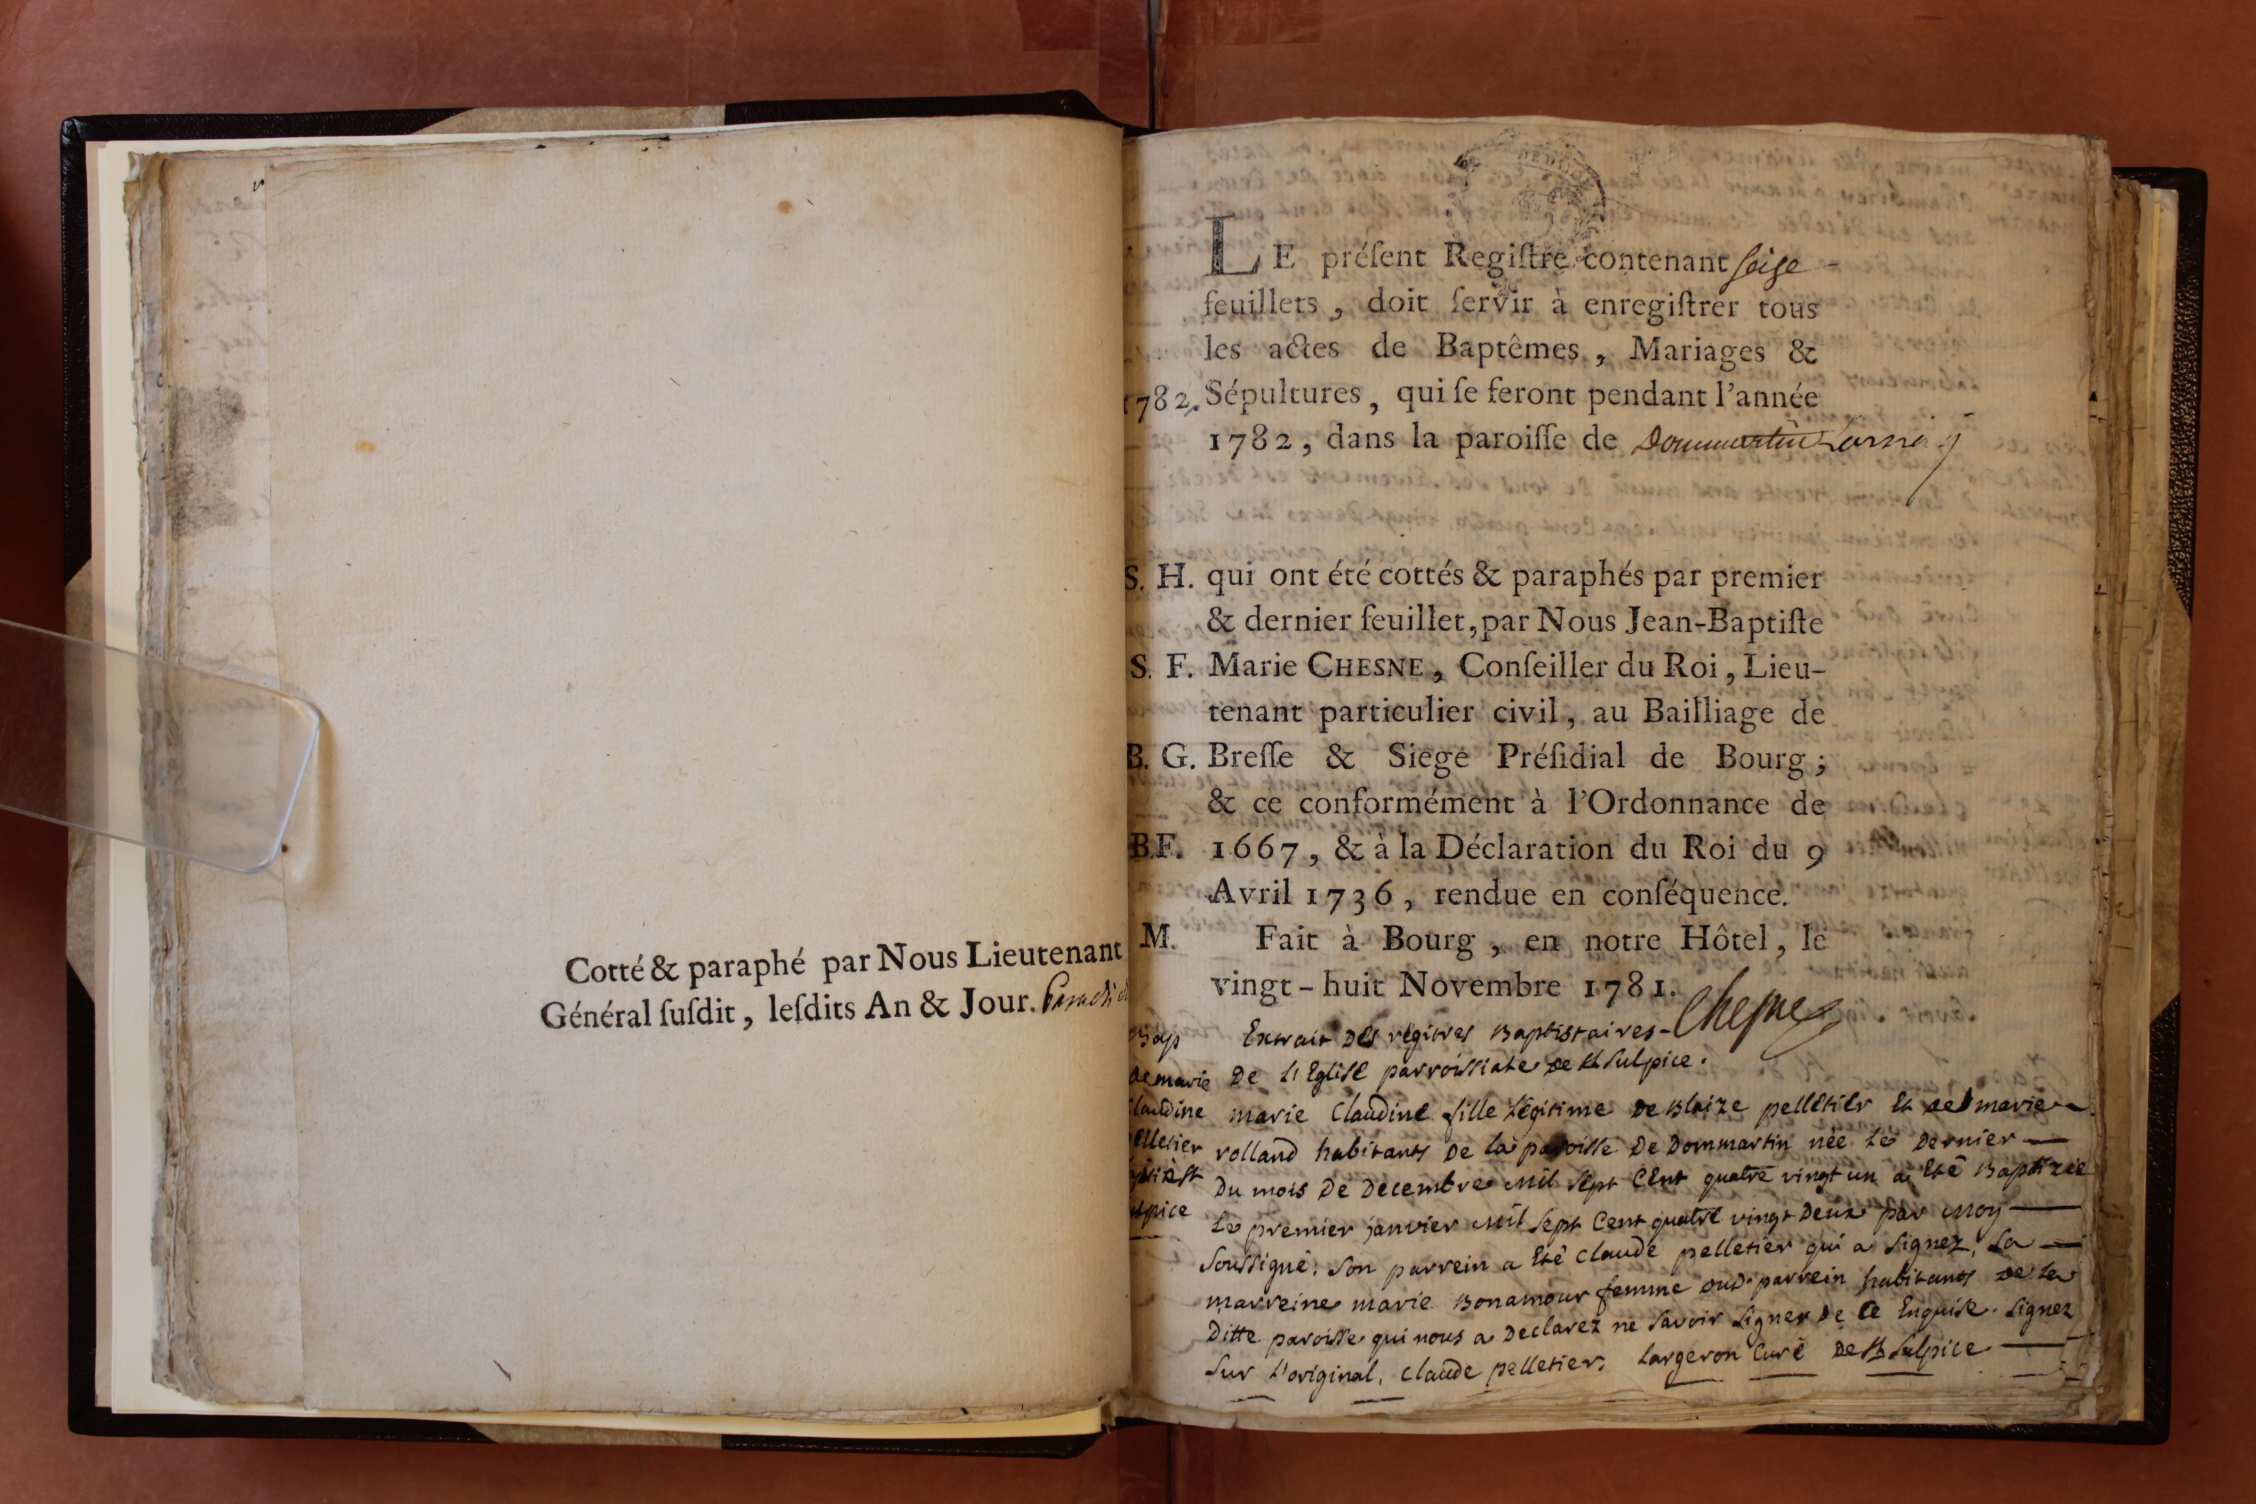 Cotté & paraphé par Nous Lieutenant
Général ſuſdit, leſdits An & Jour.
LE préſent Regiſtre contenant seize
feuillets, doit ſervir à enregiſtrer tous
les actes de Baptêmes, Mariages &
1782. Sépultures, qui ſe feront pendant l'année
1782, dans la paroiſſe de Dommartin Larnay
S. H. qui ont été cottés & paraphés par premier
& dernier feuillet, par Nous Jean-Baptiſte
S. F. Marie CHESNE, Conſeiller du Roi, Lieu-
tenant particulier civil, au Bailliage de
B. G. Breſſe & Siege Préſidial de Bourg;
& ce conformément à l'Ordonnance de
B.F. 1667, & à la Déclaration du Roi du 9
Avril 1736, rendue en conſéquence.
M. Fait à Bourg, en notre Hôtel, le
vingt-huit Novembre 1781. Chesne
Bap Extrait des régitres Baptistaires
de marie de l'Eglise parroissiale de St Sulpice.
Claudine marie Claudine fille légitime de Blaize pelletier et de marie
pelletier rolland habitants de la paroisse de Dommartin née le dernier
du mois de decembre mil sept cent quatre vingt un a eté Baptizée
le premier janvier mil sept cent quatre vingt deux par moy
soussigné: son parrein a eté claude pelletier qui a signez, la
marreine marie Bonamour femme dud. parrein habitants de la
ditte paroisse qui nous a declarez ne savoir signer de ce enquise. signez
sur l'original, claude pelletier. Largeron curé de St Sulpice